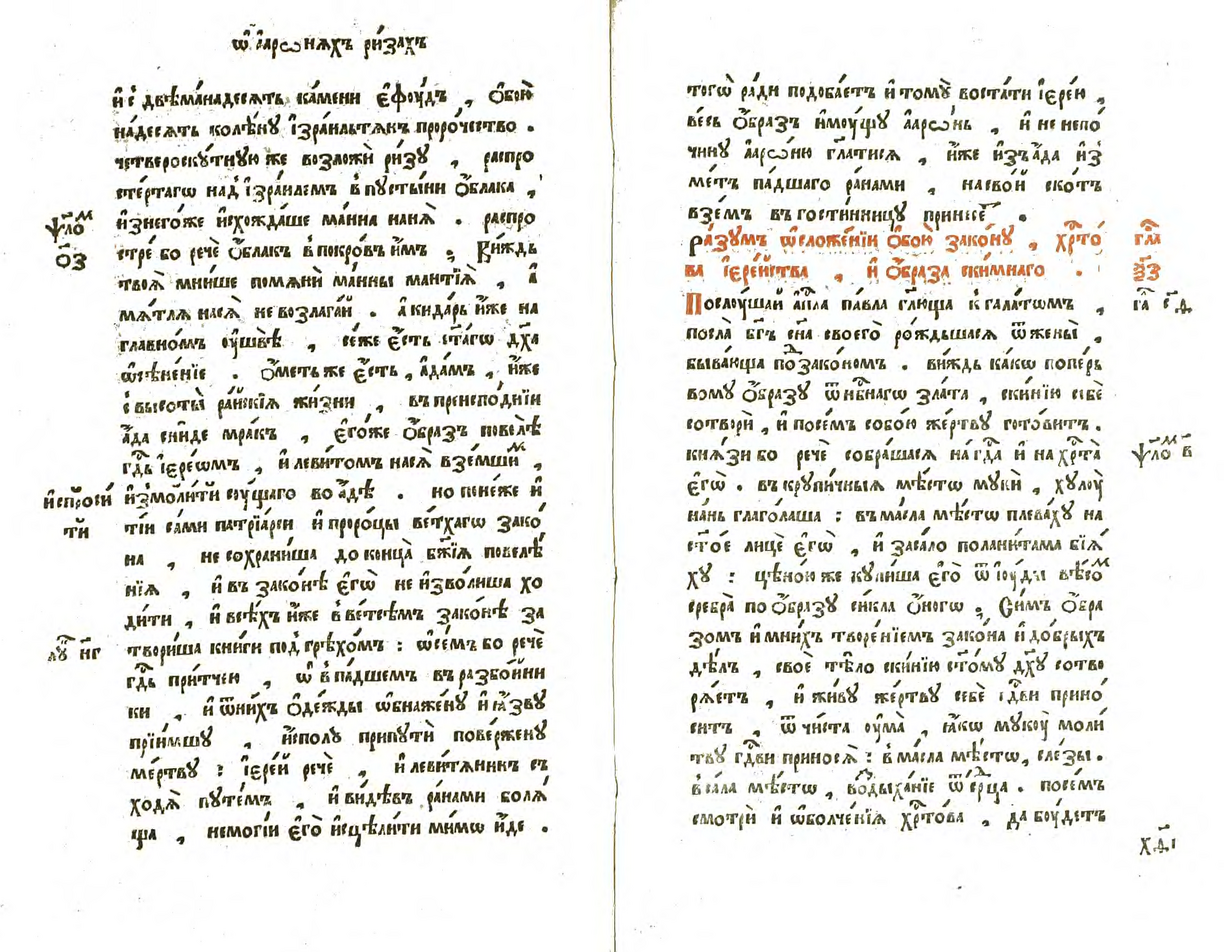 ѿ а҆арѡ́нѧхъ ри́захъ
и҆ с̾ двѣмана́десѧть ка́мени є҆фꙋ́дъ , ѻ҆бою̀
на́десѧть колѣ́нꙋ і҆зра́ильтѧнъ проро́чество .
четвероскꙋ́тнꙋю же возложѝ ри́зꙋ , распро
сте́ртагѡ над̾ і҆зра́илемъ в̾пꙋсты́ни ѻ҆́блака ,
и҆з̾негѡ́же и҆схожда́ше ма́нна нанѧ̀ . распро
стре́ бо речѐ ѻ҆́блакъ в̾покро́въ и҆̀мъ , ви́ждь
твоѧ̀ мни́ше помѧнѝ ма́нны манті́ѧ , а҆
мѧ́тлѧ насѧ̀ не возлага́й . а҆ кида́рь и҆́же на
главно́мъ ᲂу҆́швѣ , се́же є҆́сть ст҃а́гѡ дх҃а
ѡ҆сѣне́нїе . ѻ҆ме́тъ же є҆́сть , а҆да́мъ , и҆́же
с̾ высоты̀ ра́йскїѧ жи́зни , въ преиспо́днїи
а҆́да сни́де мра́къ , є҆го́же ѻ҆́бразъ повелѣ̀
гдⷭ҇ь і҆ере́ѡмъ , и҆ леви́томъ насѧ̀ взе́мшиⷨ ,
и҆змоли́ти сꙋ́щаго во а҆́дѣ . но поне́же и҆
ті́и са́ми патрїа́рси и҆ проро́цы ве́тхагѡ зако́
на , не сохрани́ша до конца̀ бж҃їѧ повелѣ́
нїѧ , и҆ въ зако́нѣ є҆гѡ̀ не и҆зво́лиша хо
ди́ти , и҆ всѣ́хъ и҆́же в̾ве́тсѣмъ зако́нѣ за
твори́ша кни́ги под̾грѣхо́мъ : ѡ҆се́мъ бо речѐ
гдⷭ҇ь при́тчею , ѡ҆ в̾па́дшемъ въ разбо́йни
ки , и҆ ѿни́хъ ѻ҆де́жды ѡ҆бнаже́нꙋ и҆ ꙗ҆́звꙋ
прїи́мшꙋ , и҆спо́лꙋ припꙋтѝ пове́рженꙋ
ме́ртвꙋ : і҆ере́й речѐ , и҆ левитѧ́нинъ съ
ходѧ̀ пꙋте́мъ , и҆ ви́дѣвъ ра́нами болѧ́
ща , немогі́и є҆го̀ и҆сцѣли́ти ми́мѡ и҆́де .
ѱаⷧ҇оⷨ
о҃з
и҆спроси́
ти
лꙋⷦ҇ нг
тогѡ̀ ра́ди подоба́етъ и҆ томꙋ̀ воста́ти і҆ере́ю ,
ве́сь ѻ҆́бразъ и҆мꙋ́щꙋ а҆арѡ́нь , и҆ не непо
чи́нꙋ а҆арѡ́ню гл҃атисѧ , и҆́же и҆зъ а҆́да и҆з̾
ме́тъ па́дшаго ра́нами , насво́й ско́тъ
взе́мъ въ гости́нницꙋ принесе́ .
Ра́зꙋмъ ѡ҆сложе́нїи ѻ҆бою̀ зако́нꙋ , хрⷭ҇то́
ва і҆ере́йства , и҆ ѻ҆́браза ски́мнаго .
Послꙋ́шай а҆пⷭ҇ла па́вла гл҃юща к̾ гала́тѡмъ ,
посла̀ бг҃ъ сн҃а своегѡ̀ ро́ждьшасѧ ѿжены̀ ,
быва́юща по́дⸯзако́номъ . ви́ждь ка́кѡ попе́рь
вомꙋ ѻ҆́бразꙋ ѿи́бнагѡ зла́та , ски́нїю себѐ
сотворѝ , и҆ посе́мъ собо́ю же́ртвꙋ гото́витъ .
кнѧ́зи бо речѐ собра́шасѧ на гдⷭ҇а и҆ на хрⷭ҇та̀
є҆гѡ̀ . въ крꙋпи́чныѧ мѣ́стѡ мꙋкѝ , хꙋлꙋ̀
на́нь глаго́лаша : въма́сла мѣ́стѡ плева́хꙋ на
ст҃о́е лицѐ є҆гѡ̀ , и҆ заса́ло полани́тама бїѧ́
хꙋ : цѣно́ю же кꙋпи́ша є҆го̀ ѿ і҆ꙋ́ды вѣ́соⷨ
сребра̀ по ѻ҆́бразꙋ си́кла ѻ҆́ногѡ . Си́мъ ѻ҆́бра
зомъ и҆ мни́хъ творе́нїемъ зако́на и҆ до́брыхъ
дѣ́лъ , своѐ тѣ́ло ски́нїю ст҃о́мꙋ дх҃ꙋ сотво
рѧ́етъ , и҆ жи́вꙋ же́ртвꙋ себѐ гдⷭ҇ви прино́
ситъ , ѿ чи́ста ᲂу҆ма̀ , ꙗ҆́кѡ мꙋкꙋ̀ моли́
твꙋ гдⷭ҇ви приносѧ̀ : в̾ ма́сла мѣ́стѡ , сле́зы .
в̾са́ла мѣ́стѡ , воⷥдыха́нїе ѿ се́рⷣца . посе́мъ
смотрѝ и҆ ѡ҆болче́нїѧ хрⷭ҇то́ва , да бꙋ́детъ
гла
ѯ҃з
га с҃ д
ѱаⷧ҇оⷨ в҃